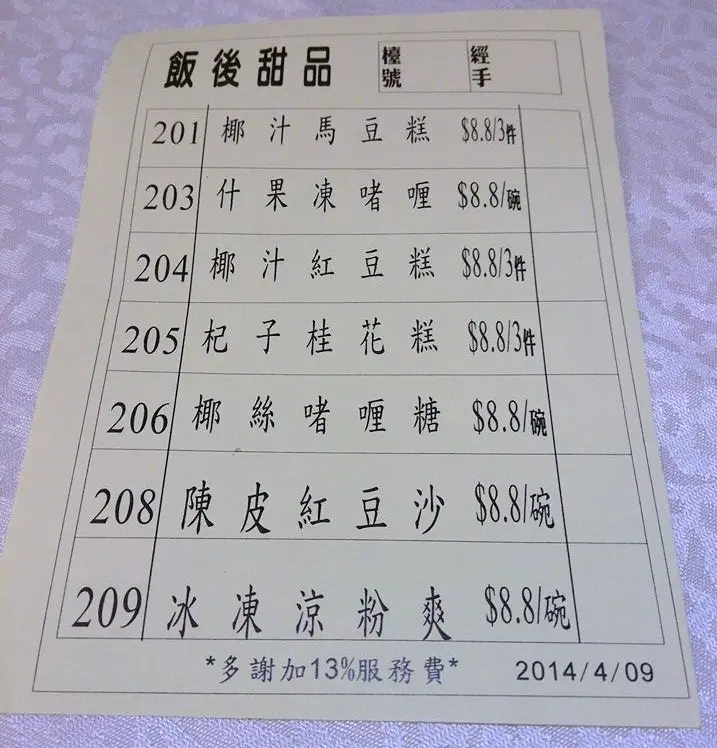 飯後甜品 檯號 經手
201 椰汁馬豆糕 $8.8/3件
203 什果凍啫喱 $8.8/碗
204 椰汁紅豆糕 $8.8/3件
205 杞子桂花糕 $8.8/3件
206 椰絲啫喱糖 $8.8/碗
208 陳皮紅豆沙 $8.8/碗
209 冰凍涼粉爽 $8.8/碗
*多謝加13%服務費* 2014/4/09